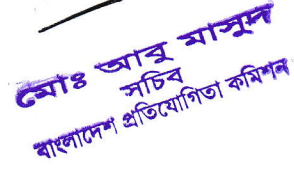 মোঃ আবু মাসুদ
সচিব
বাংলাদেশ প্রতিযোগিতা কমিশন